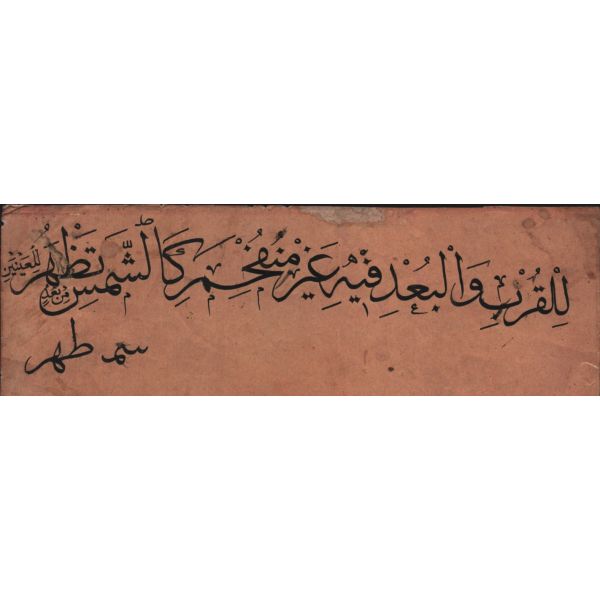 لِلْقُرْبِ وَالْبُعْدِ فِيْهِ غَيْرَ مُنْفَحِمِ كَالشَّمْسِ تَظْهَرُ لِلْعَيْنَيْنِ مِنْ بُعُدٍ
سم طهر